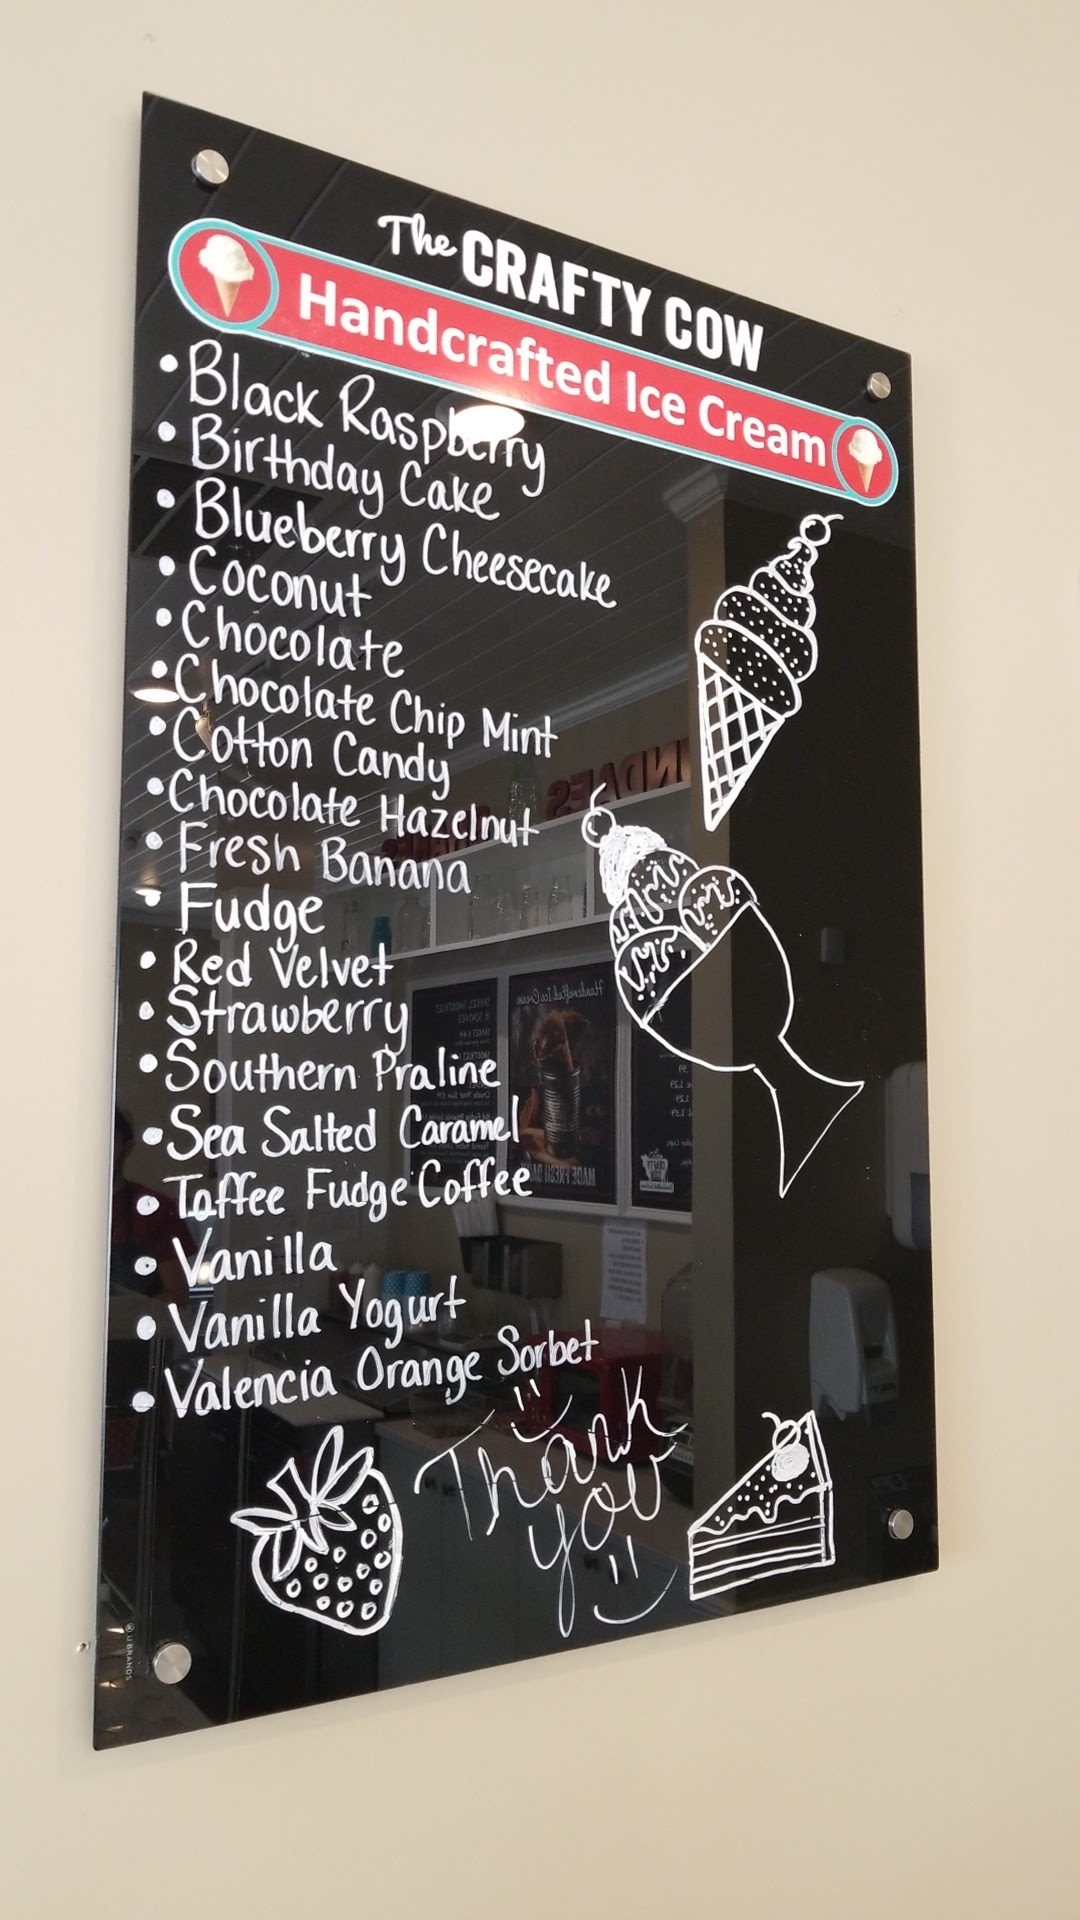 The CRAFTY COW
Handcrafted Ice Cream
• Black Raspberry
• Birthday Cake
• Blueberry Cheesecake
• Coconut
• Chocolate
• Chocolate Chip Mint
• Cotton Candy
• Chocolate Hazelnut
• Fresh Banana
• Fudge
• Red Velvet
• Strawberry
• Southern Praline
• Sea Salted Caramel
• Toffee Fudge Coffee
• Vanilla
• Vanilla Yogurt
• Valencia Orange Sorbet
Thank
you
U BRANDS
Handcrafted Ice Cream
MADE FRESH DAILY